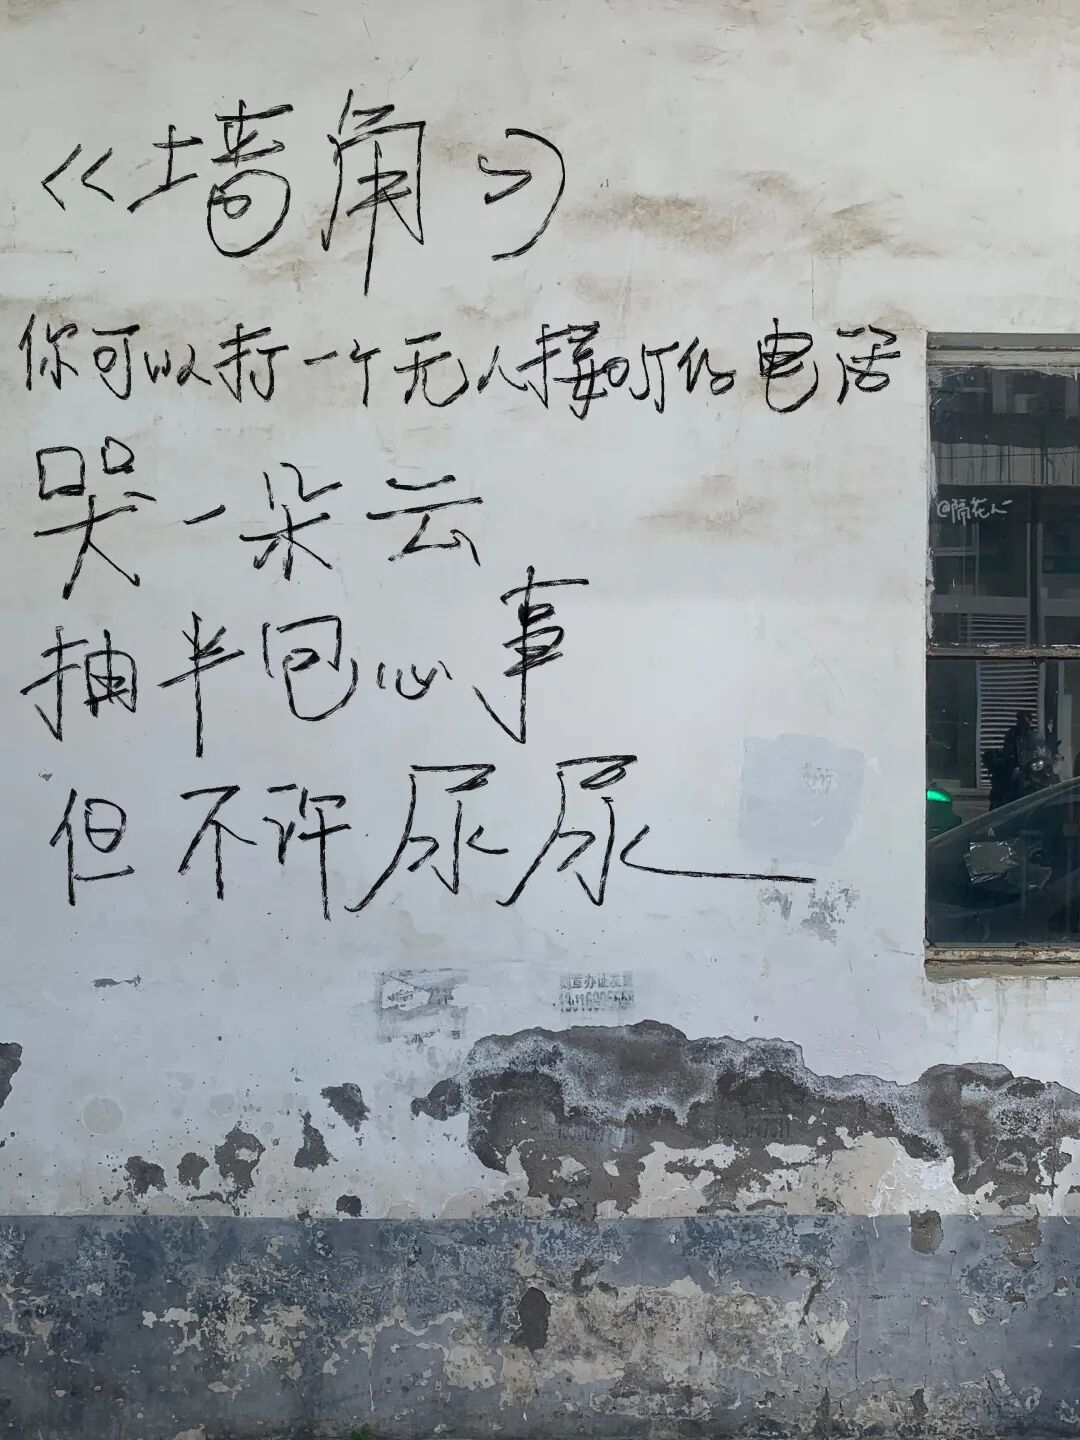 《墙角》
你可以打一个无人接听的电话
哭一朵云
@隔花人
抽半包心事
但不许尿尿
刻章办证发票